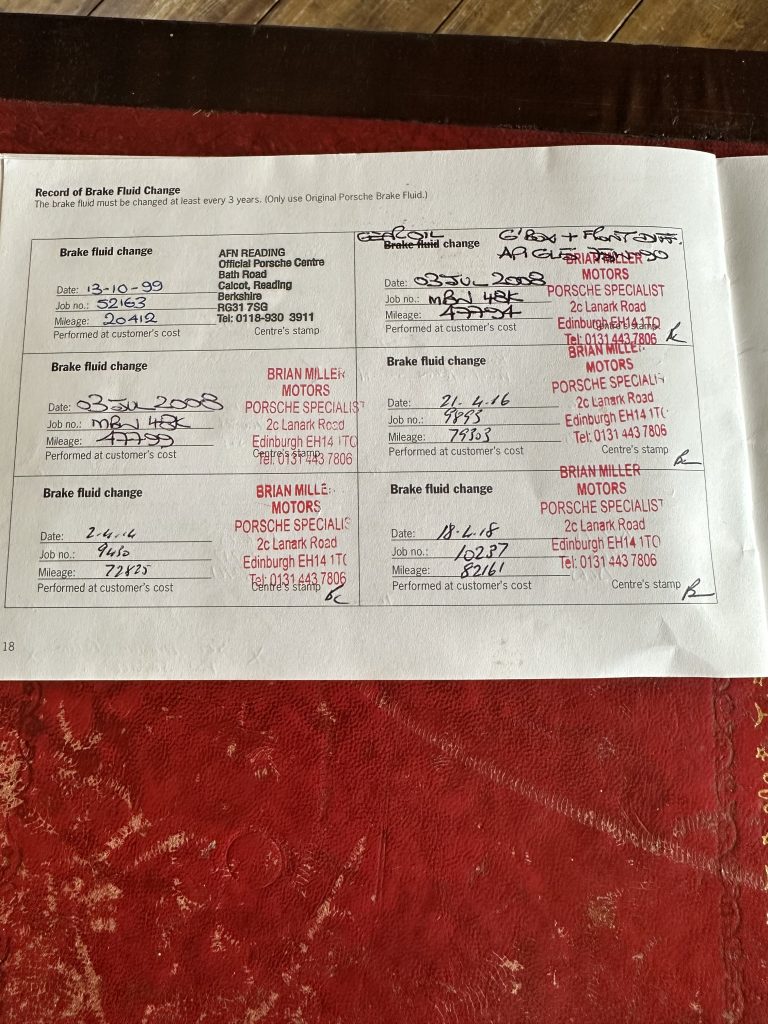 Record of Brake Fluid Change
The brake fluid must be changed at least every 3 years. (Only use Original Porsche Brake Fluid.)
Brake fluid change
AFN READING
Official Porsche Centre
Bath Road
Calcot, Reading
Berkshire
RG31 7SG
Tel: 0118-930 3911
Date: 13-10-99
Job no.: 52163
Mileage: 20412
Performed at customer's cost
Centre's stamp
GEAR OIL
G'BOX + FRONT DIFF.
Brake fluid change
API
BRIAN MILLER
MOTORS
PORSCHE SPECIALIST
2c Lanark Road
Edinburgh EH14 1TO
Tel: 0131 443 7806
Date: 03 JUL 2008
Job no.: MBN 48K
Mileage:
Performed at customer's cost
Centre's stamp
Brake fluid change
BRIAN MILLER
MOTORS
PORSCHE SPECIALIST
2c Lanark Road
Edinburgh EH14 1TO
Tel: 0131 443 7806
Date: 03 JUL 2008
Job no.: MBN 48K
Mileage: 47799
Performed at customer's cost
Centre's stamp
Brake fluid change
BRIAN MILLE
MOTORS
PORSCHE SPECIALI
2c Lanark Road
Edinburgh EH14 1T
Tel: 0131 443 7806
Date: 21.4.16
Job no.: 9893
Mileage: 79303
Performed at customer's cost
Centre's stamp
Brake fluid change
BRIAN MILLE
MOTORS
PORSCHE SPECIALIS
2c Lanark Road
Edinburgh EH14 1T
Tel: 0131 443 7806
Date: 2.4.14
Job no.: 9430
Mileage: 72825
Performed at customer's cost
Centre's stamp
Brake fluid change
BRIAN MILLER
MOTORS
PORSCHE SPECIALIST
2c Lanark Road
Edinburgh EH14 1TO
Tel: 0131 443 7806
Date: 18.4.18
Job no.: 10237
Mileage: 82161
Performed at customer's cost
Centre's stamp
18